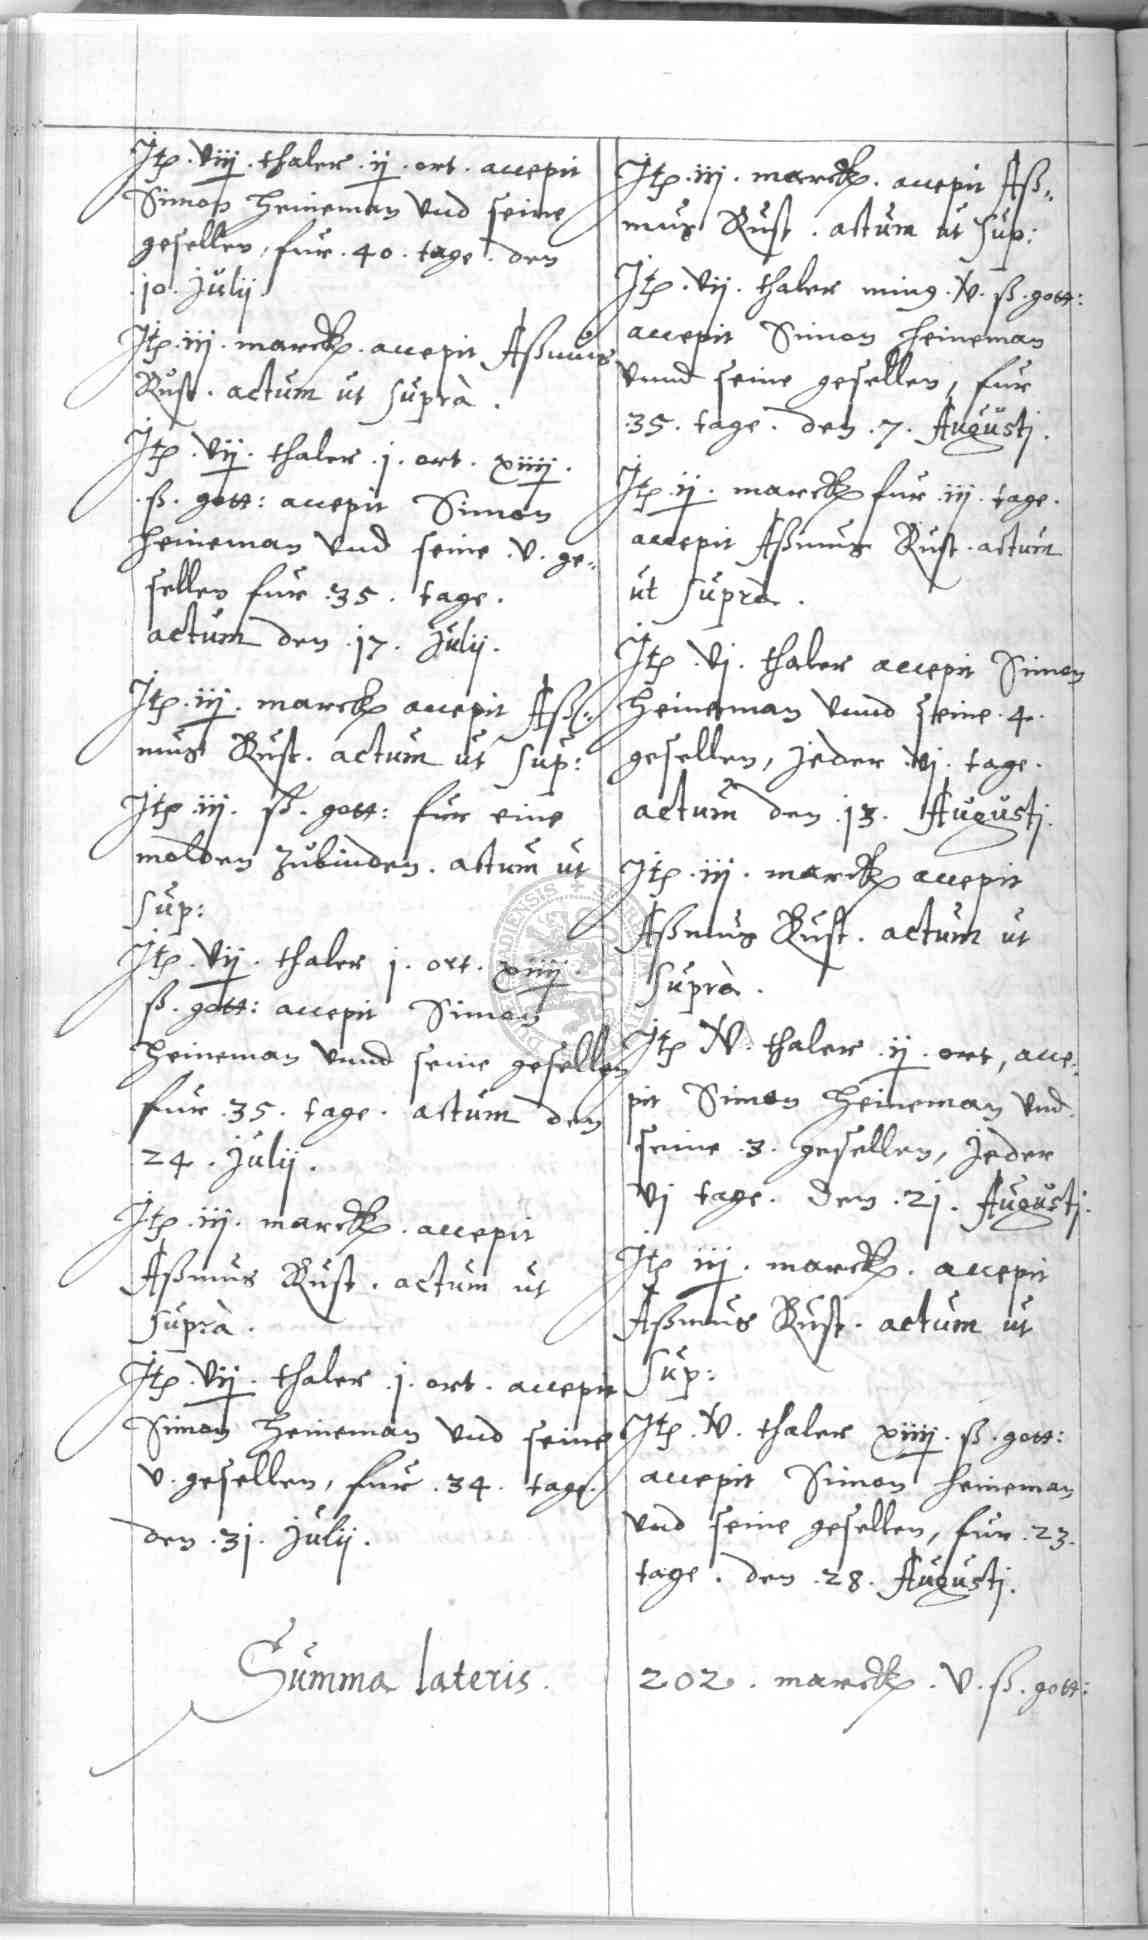 Itꝑ .viij. thaler .ij. ort. accepit
Simon Heineman vnd seine
gesellen, fur .40. tage. den
.10. Julij.
Itꝑ .iij. marck. accepit Aßmus
Rust. actum ut suprà.
Itꝑ .vij. thaler .j. ort. xiiij.
.ß. gott: accepit Simon
Heineman vnd seine .v. ge„
sellen fur .35. tage.
actum den .17. Julij.
Itꝑ .iij. marck accepit Aß„
mus Rust. actum ut sup:
Itꝑ .iij. ß. gott: fur eine
molden zubinden. actum ut
sup:
Itꝑ .vij. thaler j. ort. xiiij.
ß. gott: accepit Simon
Heineman vnnd seine gesellen
fur .35. tage. actum den
24. Julij.
Itꝑ .iij. marck. accepit
Aßmus Rust. actum ut
suprà.
Itꝑ .vij. thaler .j. ort. accepit
Simon Heineman vnd seine
v. gesellen, fur .34. tage.
den .31. Julij.
Itꝑ .iij. marck. accepit Aß„
mus Rust. actum ut sup:
Itꝑ .vij. thaler ming .iv. ß. gott:
accepit Simon Heineman
vnnd seine gesellen, fur
.35. tage. den .7. Augustj.
Itꝑ .ij. marck fur .iij. tage.
accepit Aßmus Rust. actum
ut suprà.
Itꝑ .vj. thaler accepit Simon
Heineman vnnd seine .4.
gesellen, jeder .vj. tage.
actum den .13. Augustj.
Itꝑ .iij. marck accepit
Aßmus Rust. actum ut
suprà.
Itꝑ iv. thaler .ij. ort, acce„
pit Simon Heineman vnd
seine .3. gesellen, jeder
vj tage. den .21. Augustj.
Itꝑ iij. marck. accepit
Aßmus Rust. actum ut
sup:
Itꝑ .iv. thaler xiiij. ß. gott:
accepit Simon Heineman
vnd seine gesellen, fur .23.
tage. den .28. Augustj.
Summa lateris. 202. marck. v. ß. gott: